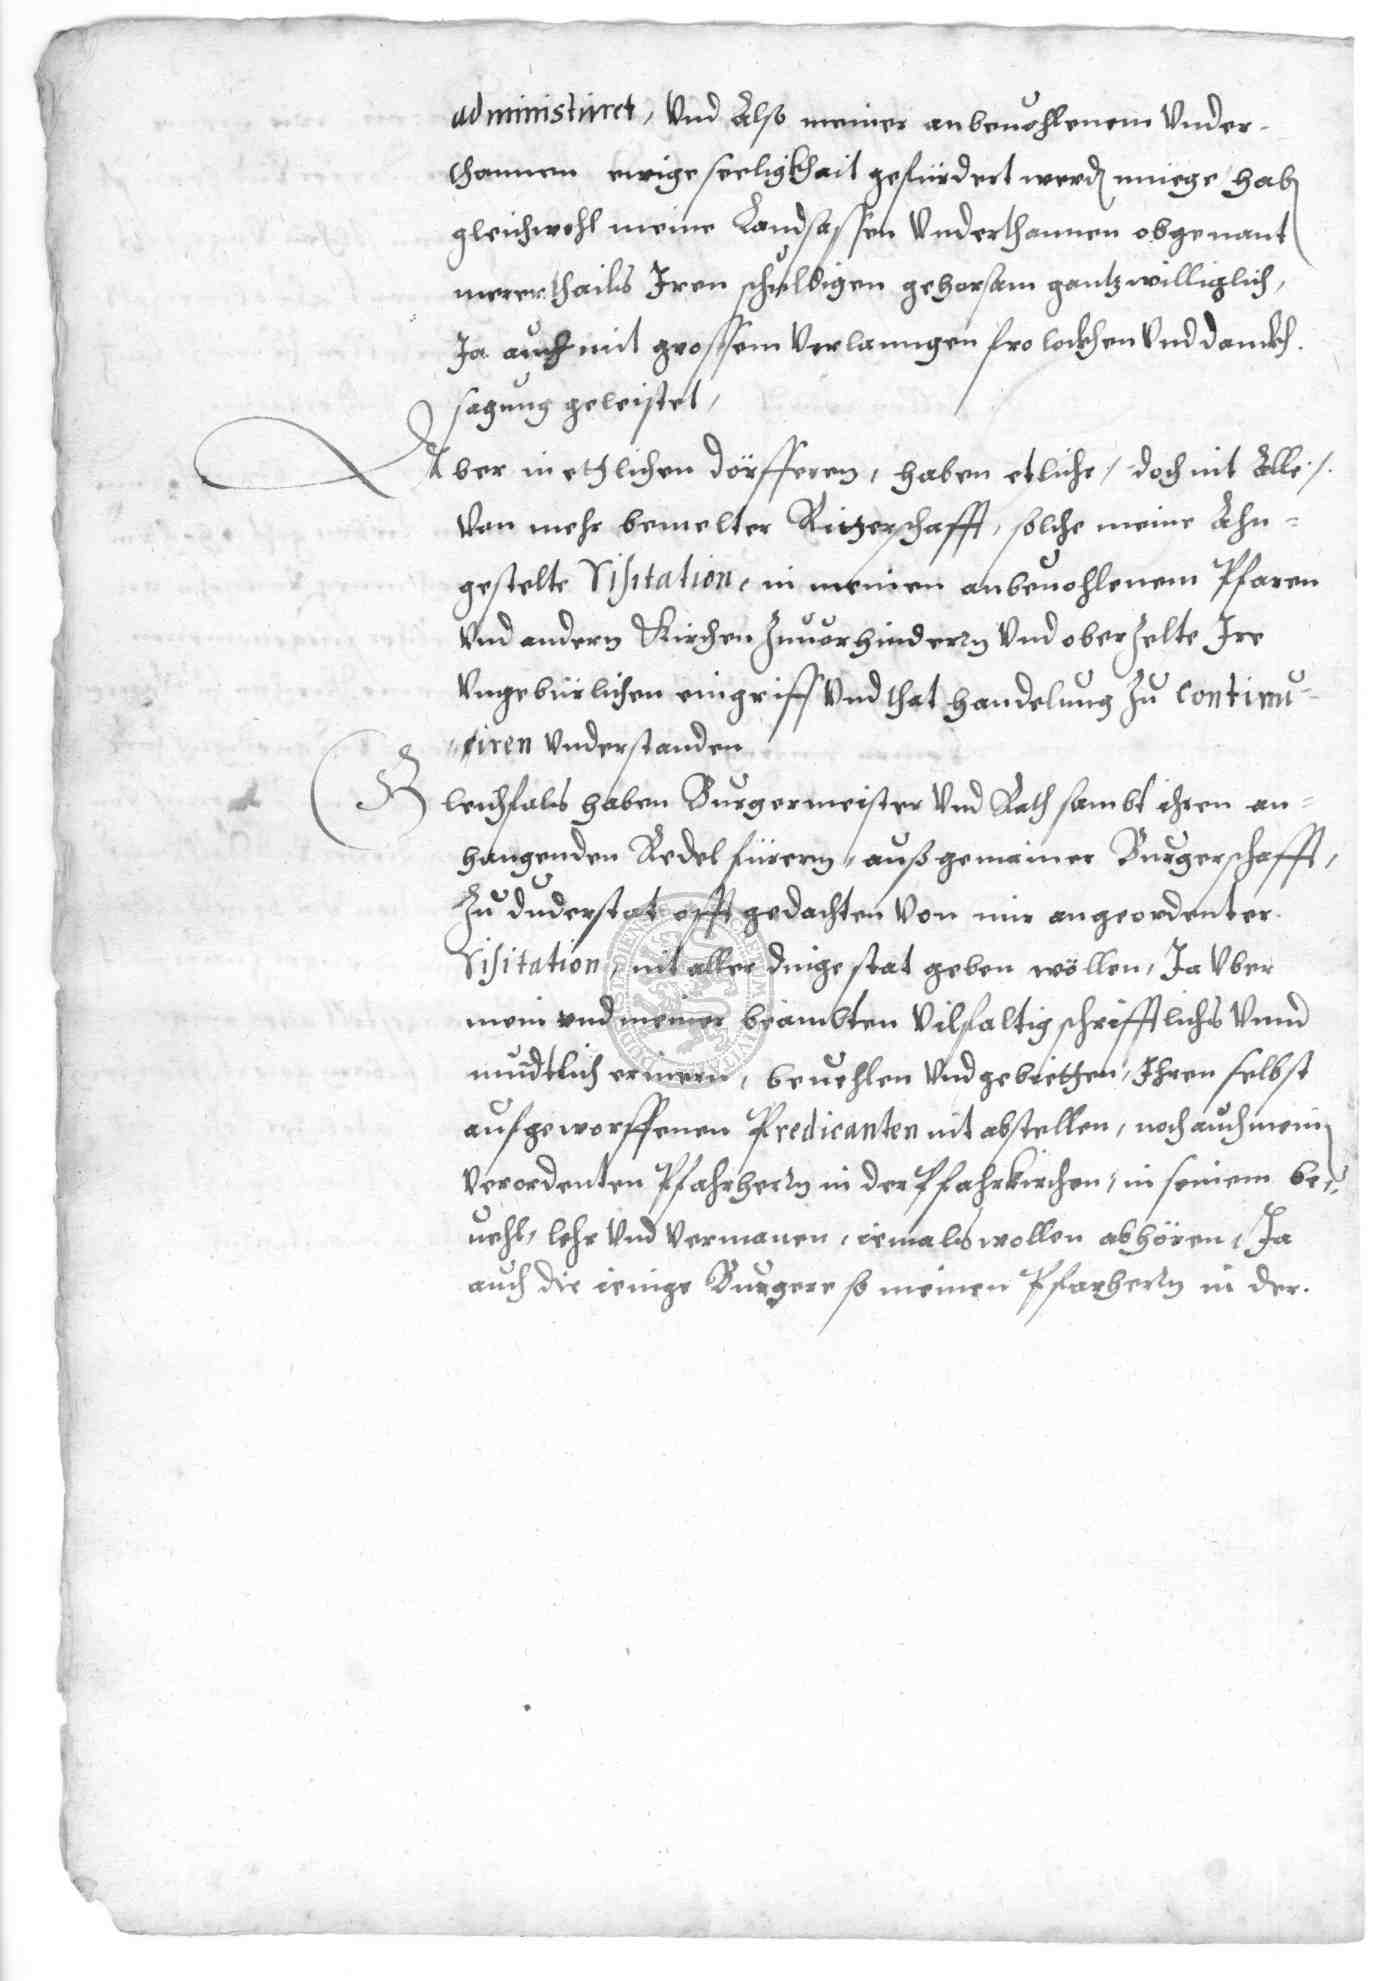 administriret, Vnd Also meiner anbeuohlenem Vnder-
thannen ewige seeligkhait gefürdert werden müege, haben
gleichwohl meine Landsassen Vnderthannen obgenant
merertheils Iren schuldigen gehorsam gantz williglich,
Ja auch mit grossem Verlanngen frolockhen Vnd danckh-
sagung geleistet,
Aber in etzlichen dörfferen, haben etliche /: doch nit Alle :/
Von mehr bemelter Ritterschafft, solche meine Ahn=
gestelte Visitation, in meinen anbeuohlenem Pfaren
Vnd andern Kirchen Zuuorhindern Vnd oberzelte Ire
Vngebürlichen eingriff Vnd that handelung Zu continu=
iren Vnderstanden
Gleichfals haben Burgermeister Vnd Rath sambt ihren an=
hangenden Redelfürern, auß gemainer Burgerschafft,
Zu duderstat offt gedachten Von mir angeordenter
Visitation, nit aller dinge stat geben wöllen, Ja Vber
mein vnd meiner beambten Vilfaltig schrifftlichs Vnnd
mündtlich erinern, beuehlen Vnd gebietten, Ihren selbst
aufgeworffenen Predicanten nit abstellen, noch auch meinen
Verordenten Pfahrhern in der Pfahrkirchen, in seinem be=
uehl, lehr Vnd Vermanen, iemals wollen abhören, Ja
auch die ienige Burgere so meinen Pfarhern in der.